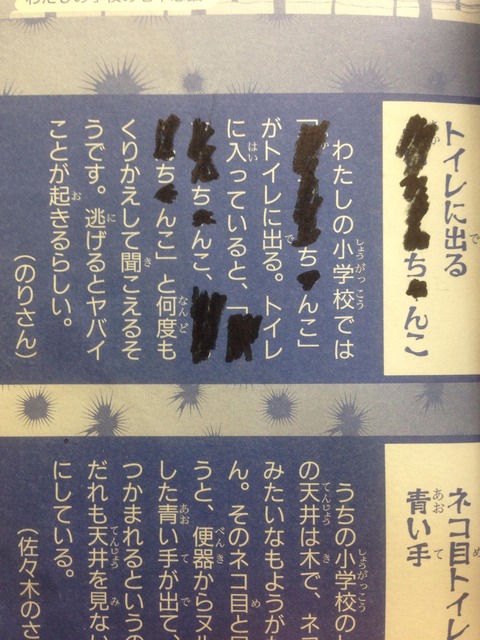 トイレに出る
ちんこ
わたしの小学校では
「ちんこ」
がトイレに出る。トイレ
に入っていると、「
ちんこ、
ちんこ」と何度も
くりかえして聞こえるそ
うです。逃げるとヤバイ
ことが起きるらしい。
(のりさん)
ネコ目トイレ
青い手
うちの小学校の
の天井は木で、ネコ
みたいなもようが
ん。そのネコ目と
うと、便器からヌル
した青い手が出て、
つかまれるというの
だれも天井を見ない
にしている。
(佐々木のさ